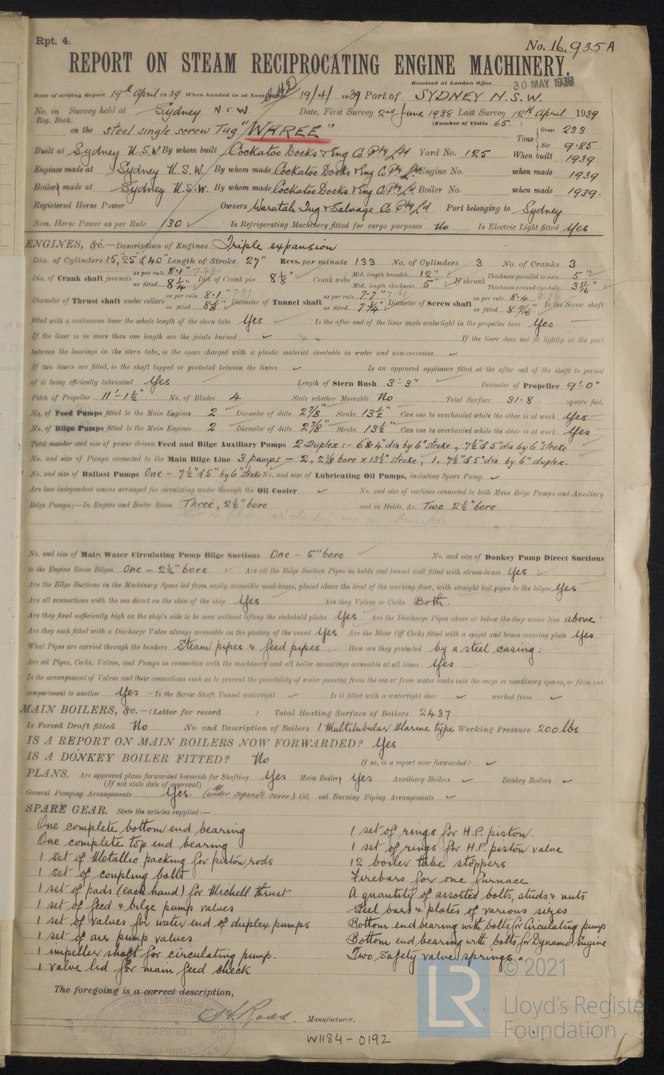 Rpt. 4.
No. 16,935A
REPORT ON STEAM RECIPROCATING ENGINE MACHINERY.
Received at London Office 30 MAY 1939
Date of writing Report 19th April 1939 When handed in at Local Office 19/4/1939 Port of SYDNEY N.S.W.
No. in Reg. Book. Survey held at Sydney N S W Date, First Survey 2nd June 1938 Last Survey 12th April 1939
(Number of Visits 65.)
on the steel single screw Tug "WAREE" Tons Gross 233 Net 9.85
Built at Sydney N.S.W. By whom built Cockatoo Docks & Eng Co Pty Ltd Yard No. 125 When built 1939
Engines made at Sydney N.S.W. By whom made Cockatoo Docks & Eng Co Pty Ltd Engine No. when made 1939
Boilers made at Sydney N.S.W. By whom made Cockatoo Docks & Eng Co Pty Ltd Boiler No. when made 1939.
Registered Horse Power Owners Waratah Tug & Salvage Co Pty Ltd Port belonging to Sydney
Nom. Horse Power as per Rule 130 Is Refrigerating Machinery fitted for cargo purposes No Is Electric Light fitted Yes
ENGINES, &c.—Description of Engines Triple expansion
Dia. of Cylinders 15, 25 & 40" Length of Stroke 27" Revs. per minute 133 No. of Cylinders 3 No. of Cranks 3
Dia. of Crank shaft journals as per rule 8.1" as fitted 8¼" Dia. of Crank pin 8⅛" Crank webs Mid. length breadth 12" Mid. length thickness 5" If shrunk Thickness parallel to axis 5" Thickness around eye-hole 3 11/16"
Diameter of Thrust shaft under collars as per rule 8.1 as fitted Diameter of Tunnel shaft as per rule 7.7" as fitted 7¾" Diameter of Screw shaft as per rule 8.4 as fitted 8 9/16" Is the Screw shaft
fitted with a continuous liner the whole length of the stern tube Yes Is the after end of the liner made watertight in the propeller boss Yes
If the liner is in more than one length are the joints burned If the liner does not fit tightly at the part
between the bearings in the stern tube, is the space charged with a plastic material insoluble in water and non-corrosive
If two liners are fitted, is the shaft lapped or protected between the liners Is an approved appliance fitted at the after end of shaft to permit
of it being efficiently lubricated Yes Length of Stern Bush 3'-3" Diameter of Propeller 9'-0"
Pitch of Propeller 11'-1½" No. of Blades 4 State whether Moveable No Total Surface 31.8 square feet.
No. of Feed Pumps fitted to the Main Engines 2 Diameter of ditto 2⅞" Stroke 13½" Can one be overhauled while the other is at work Yes
No. of Bilge Pumps fitted to the Main Engines 2 Diameter of ditto 2⅞" Stroke 13½" Can one be overhauled while the other is at work Yes
Total number and size of power driven Feed and Bilge Auxiliary Pumps 2 Duplex :- 6" & 4" dia by 6" stroke, 7½" & 5" dia by 6" stroke
No. and size of Pumps connected to the Main Bilge Line 3 pumps - 2, 2⅞ bore x 13½" stroke, 1. 7½" & 5" dia by 6" duplex.
No. and size of Ballast Pumps One - 7½" & 5" by 6" stroke No. and size of Lubricating Oil Pumps, including Spare Pump
Are two independent means arranged for circulating water through the Oil Cooler No. and size of suctions connected to both Main Bilge Pumps and Auxiliary
Bilge Pumps;—In Engine and Boiler Room Three, 2½" bore and in Holds, &c. Two 2½" bore
No. and size of Main Water Circulating Pump Bilge Suctions One - 5" bore No. and size of Donkey Pump Direct Suctions
to the Engine Room Bilges One - 2½" bore Are all the Bilge Suction Pipes in holds and tunnel well fitted with strum-boxes Yes
Are the Bilge Suctions in the Machinery Space led from easily accessible mud-boxes, placed above the level of the working floor, with straight tail pipes to the bilges Yes
Are all connections with the sea direct on the skin of the ship Yes Are they Valves or Cocks Both.
Are they fixed sufficiently high on the ship's side to be seen without lifting the stokehold plates Yes Are the Discharge Pipes above or below the deep water line above
Are they each fitted with a Discharge Valve always accessible on the plating of the vessel Yes Are the Blow Off Cocks fitted with a spigot and brass covering plate Yes
What Pipes are carried through the bunkers Steam pipes & feed pipes How are they protected by a steel casing.
Are all Pipes, Cocks, Valves, and Pumps in connection with the machinery and all boiler mountings accessible at all times Yes
Is the arrangement of Valves and their connections such as to prevent the possibility of water passing from the sea or from water tanks into the cargo or machinery spaces, or from one
compartment to another Yes Is the Screw Shaft Tunnel watertight Is it fitted with a watertight door worked from
MAIN BOILERS, &c.—(Letter for record ) Total Heating Surface of Boilers 2437
Is Forced Draft fitted No No. and Description of Boilers 1 Multitubular Marine type Working Pressure 200 lbs
IS A REPORT ON MAIN BOILERS NOW FORWARDED? Yes
IS A DONKEY BOILER FITTED? No If so, is a report now forwarded?
PLANS. Are approved plans forwarded herewith for Shafting Yes Main Boilers Yes Auxiliary Boilers Donkey Boilers
(If not state date of approval)
General Pumping Arrangements Yes. (under separate cover) Oil fuel Burning Piping Arrangements
SPARE GEAR. State the articles supplied:—
One complete bottom end bearing
One complete top end bearing
1 set of Metallic packing for piston rods
1 set of coupling bolts
1 set of pads (each hand) for Michell thrust
1 set of feed & bilge pump valves
1 set of valves for water end of duplex pumps
1 set of air pump valves
1 impeller shaft for circulating pump.
1 valve lid for main feed check
1 set of rings for H.P. piston.
1 set of rings for H.P. piston valve
12 boiler tube stoppers
Firebars for one furnace
A quantity of assorted bolts, studs & nuts
Steel bars & plates of various sizes
Bottom end bearing with bolts for Circulating pump
Bottom end bearing with bolts for Dynamo Engine
Two Safety valve springs.
The foregoing is a correct description,
Manufacturer.
W1184-0192
LR
© 2021
Lloyd's Register
Foundation